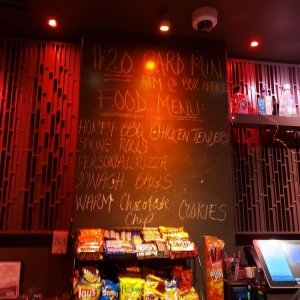 $20 CARD MIN
ATM @ BOX OFFICE
FOOD MENU:
HONEY BBQ CHICKEN TENDERS
SPRING ROLLS
PERSONAL PIZZA
SPINACH
WARM Chocolate Chip COOKIES
Lay's